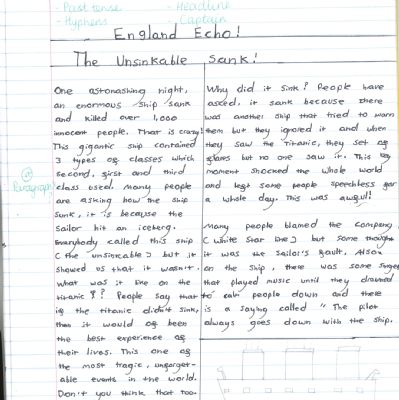 - Past tense
- Headline
- Hyphens
- Captain
England Echo!
The Unsinkable Sank!
One astonashing night,
an enormous ship sank
and killed over 1,000
innocent people. That is crazy!
This gigantic ship contained
3 types of classes which
second, first and third
class used. Many people
are asking how the ship
sunk, it is because the
sailor hit an iceberg.
Everybody called this ship
(the unsinkable) but it
showed us that it wasn't.
What was it like on the
titanic?? People say that
if the titanic didn't sink,
then it would of been
the best experience of
their lives. This one of
the most tragic, unforget-
able events in the world.
Don't you think that too-
Paragraph
Why did it sink? People have
asked, it sank because there
was another ship that tried to warn
them but they ignored it and when
they saw the Titanic, they set of
flares but no one saw it. This
moment shocked the whole world
and left some people speechless for
a whole day. This was awful!
Many people blamed the company
(White Star Line) but some thought
it was the sailor's fault. Also
on the ship, there was some
that played music until they drowned
to calm people down and there
is a saying called " The pilot
always goes down with the ship.